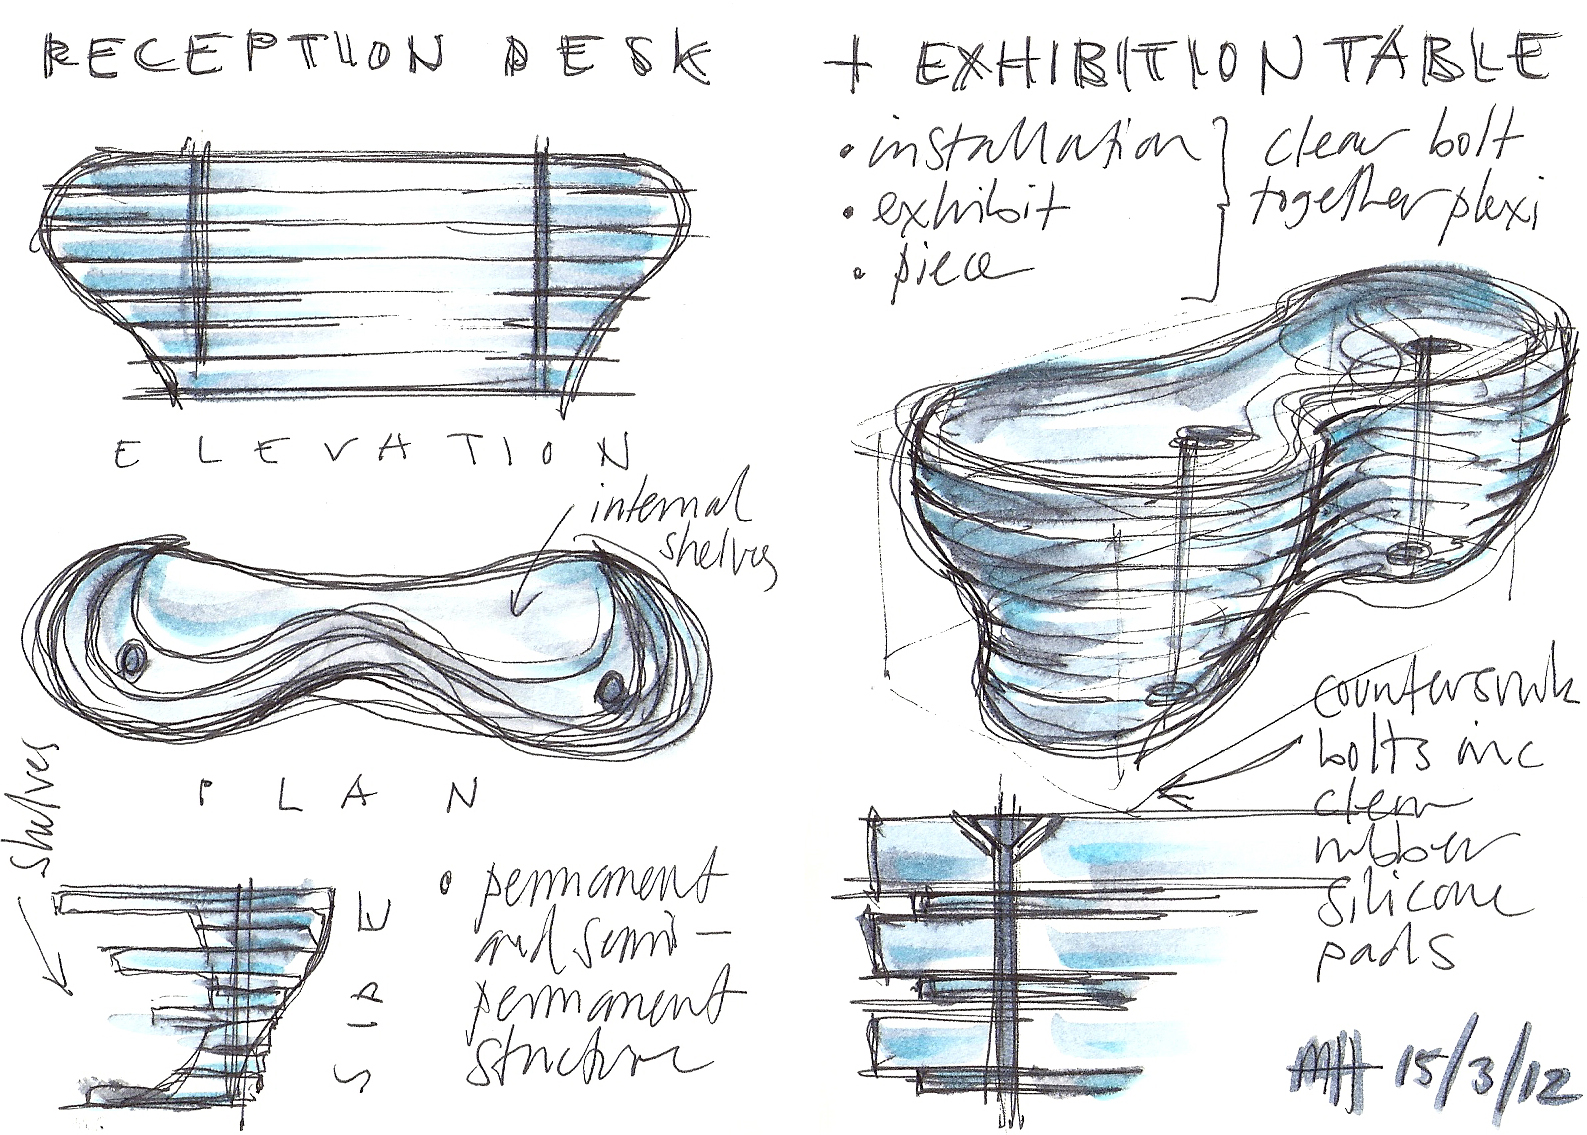 RECEPTION DESK + EXHIBITION TABLE
• installation
• exhibit
• piece
clear bolt
together plexi
ELEVATION
internal
shelves
PLAN
shelves
SIDE
• permanent
and semi-
permanent
structure
countersunk
bolts inc
clear
rubber
silicone
pads
MH 15/3/12